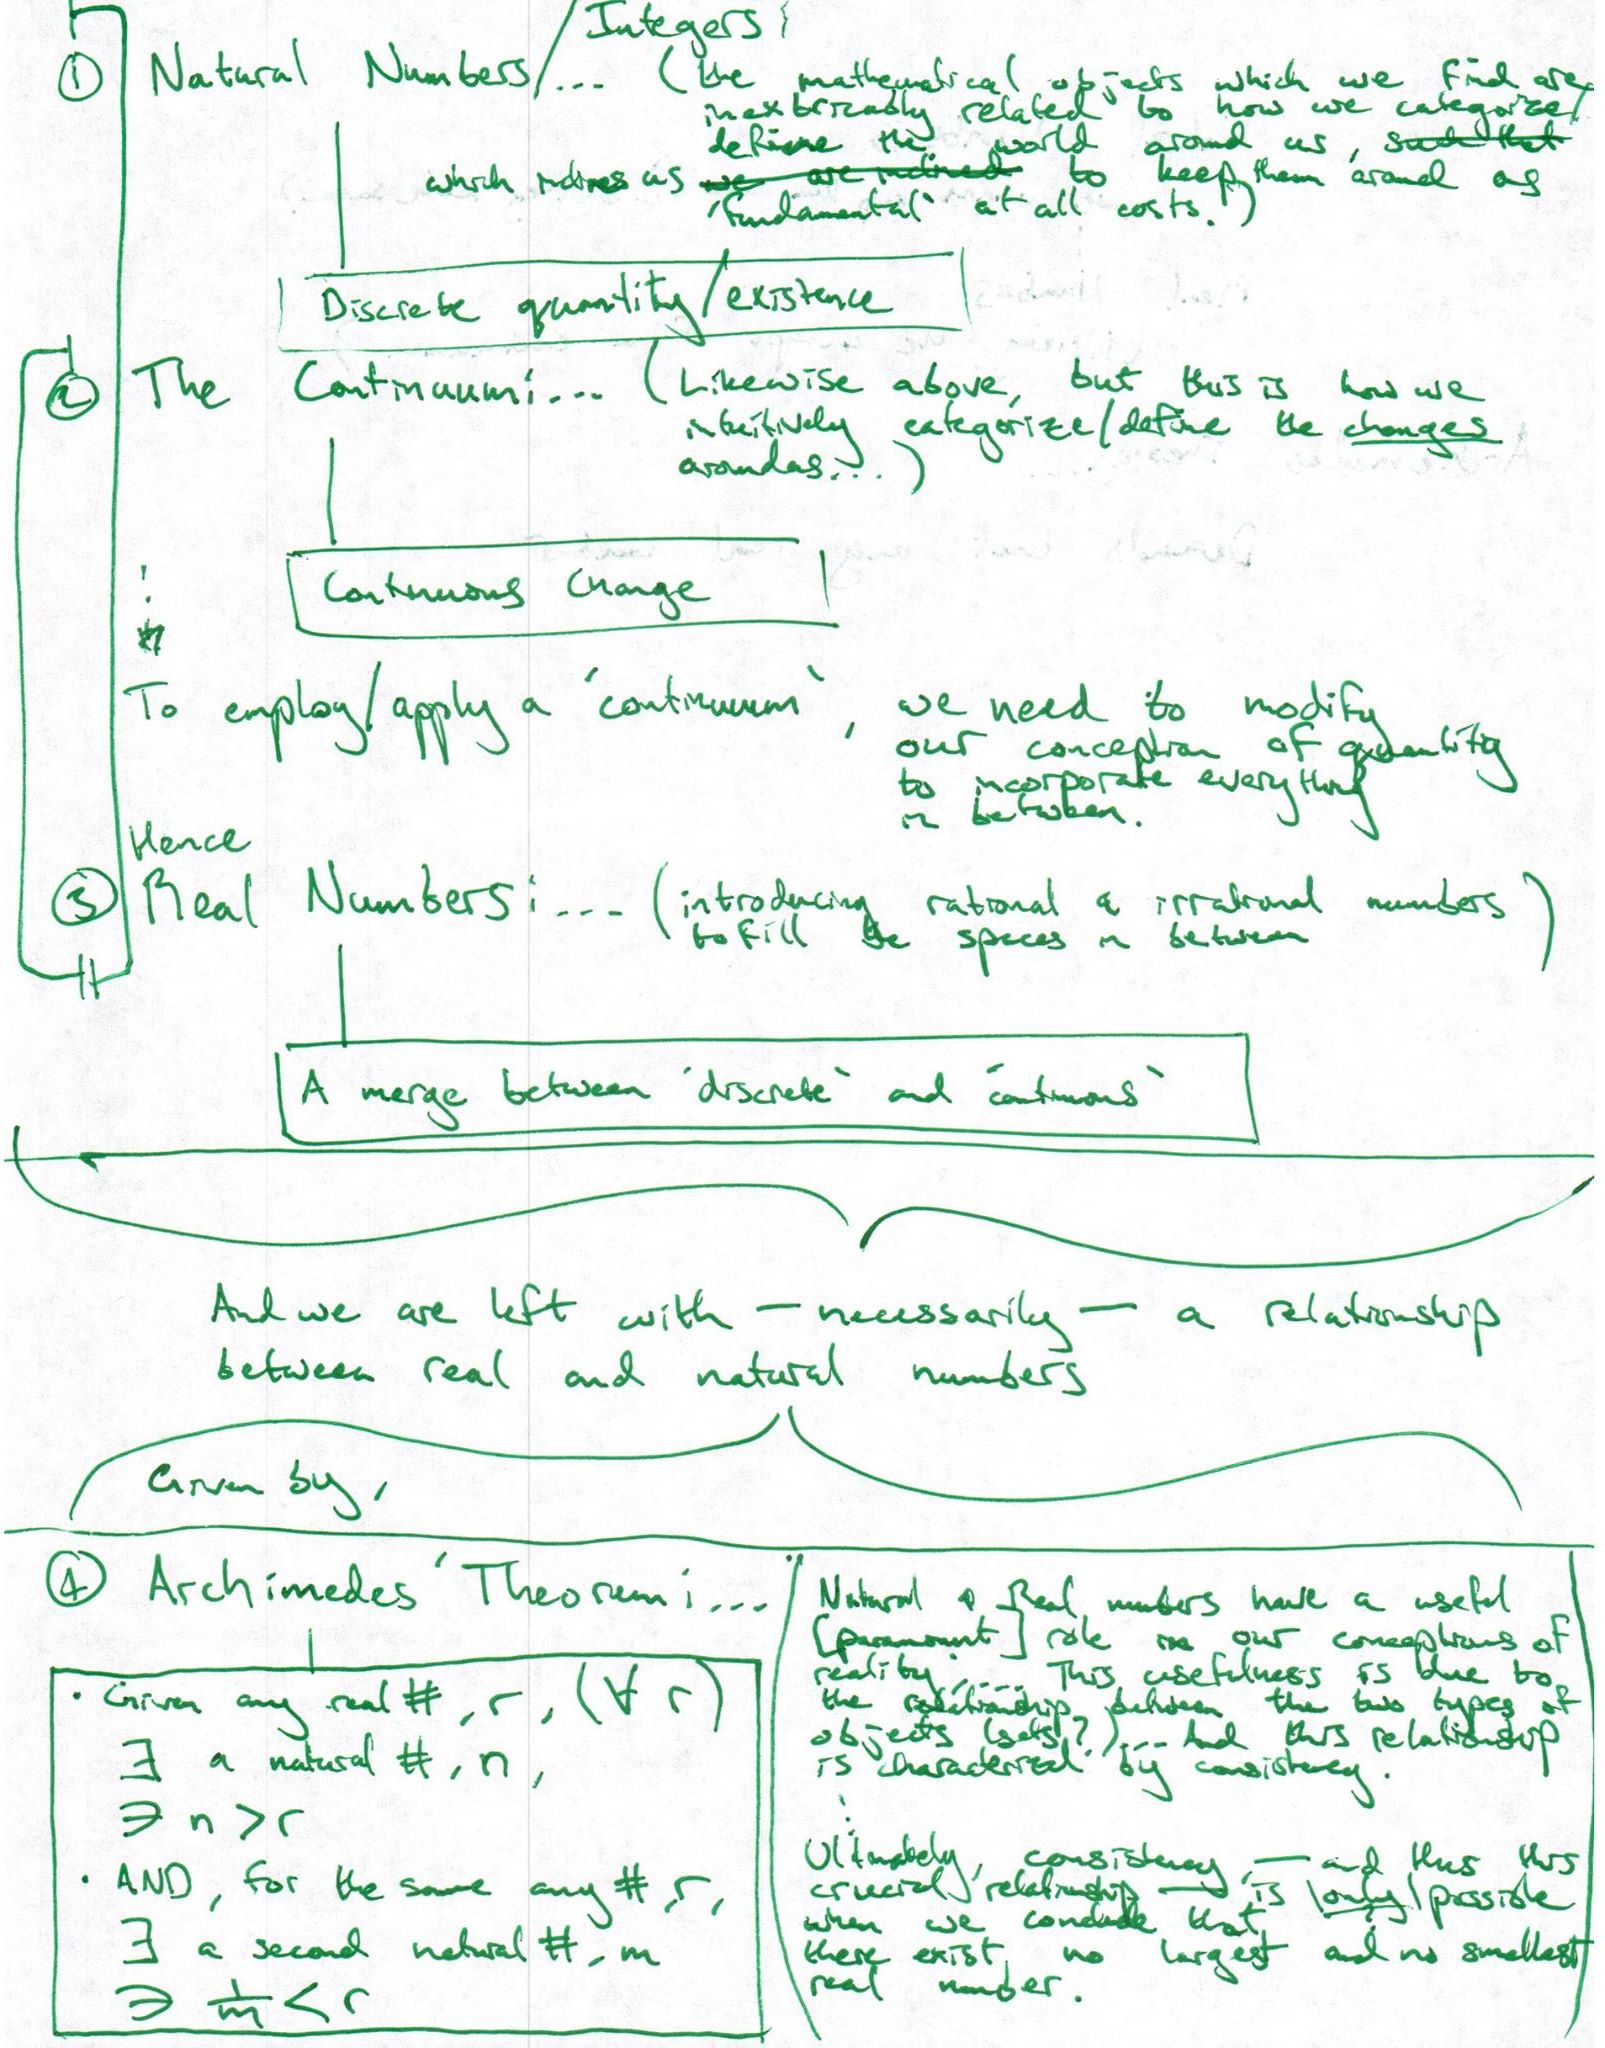 Integers:
① Natural Numbers/... (the mathematical objects which we find are
inextricably related to how we categorize/
define the world around us, such that
which inclines us we are inclined to keep them around as
'fundamental' at all costs.)
Discrete quantity/existence
② The Continuum:... (Likewise above, but this is how we
intuitively categorize/define the changes
around us...)
Continuous Change
To employ/apply a 'continuum', we need to modify
our conception of quantity
to incorporate everything
in between.
Hence
③ Real Numbers:... (introducing rational & irrational numbers
to fill the spaces in between)
A merge between 'discrete' and 'continuous'
And we are left with — necessarily — a relationship
between real and natural numbers
Given by,
④ Archimedes' Theorem:...
• Given any real #, r, (∀ r)
∃ a natural #, n,
∋ n > r
• AND, for the same any #, r,
∃ a second natural #, m
∋ 1/m < r
(Natural & Real numbers have a useful
[paramount] role in our conceptions of
reality,.... This usefulness is due to
the relationship between the two types of
objects (sets?)... And this relationship
is characterized by consistency.
Ultimately, consistency, — and thus this
crucial relationship — is |only| possible
when we conclude that,
there exist, no largest and no smallest
real number.)